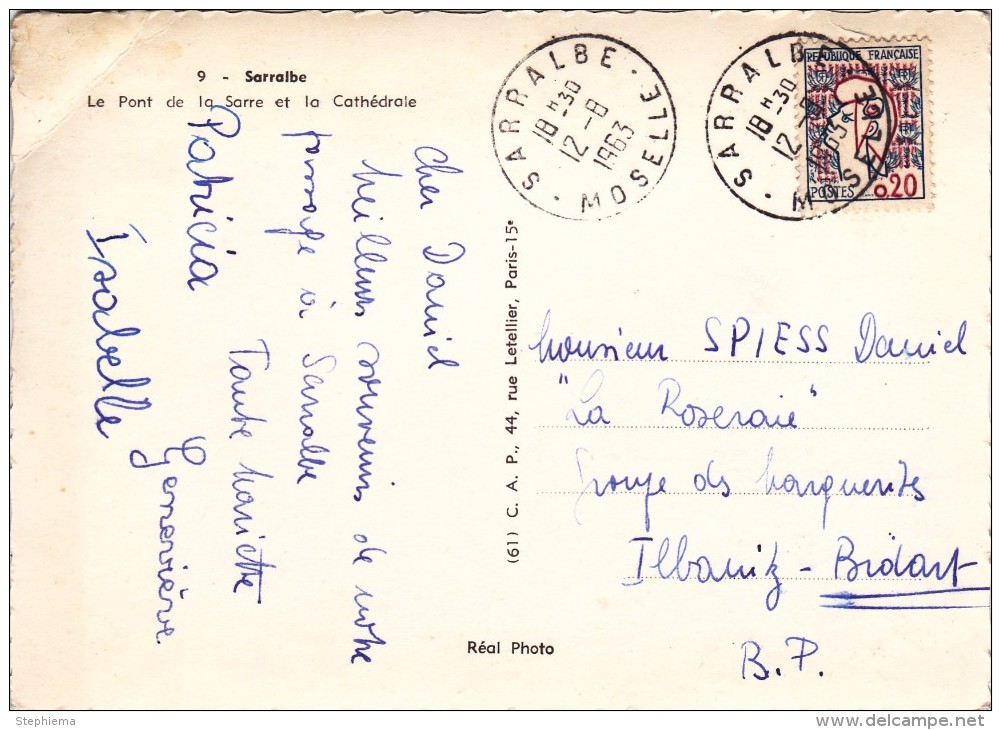 9 - Sarralbe
Le Pont de la Sarre et la Cathédrale
Cher Daniel
Meilleurs souvenirs de notre
passage à Sarralbe
Tante Mariette
Patricia
Geneviève.
Isabelle
(61) C. A. P., 44, rue Letellier, Paris-15e
Réal Photo
SARRALBE · MOSELLE ·
18 H 30
12 -8
1963
SARRALBE · MOSELLE ·
18 H 30
12 -8
1963
REPUBLIQUE FRANÇAISE
POSTES
0,20
Monsieur SPIESS Daniel
"La Roseraie"
Groupe des Marguerites
Ilbarritz - Bidart
B.P.
Stephiema
www.delcampe.net